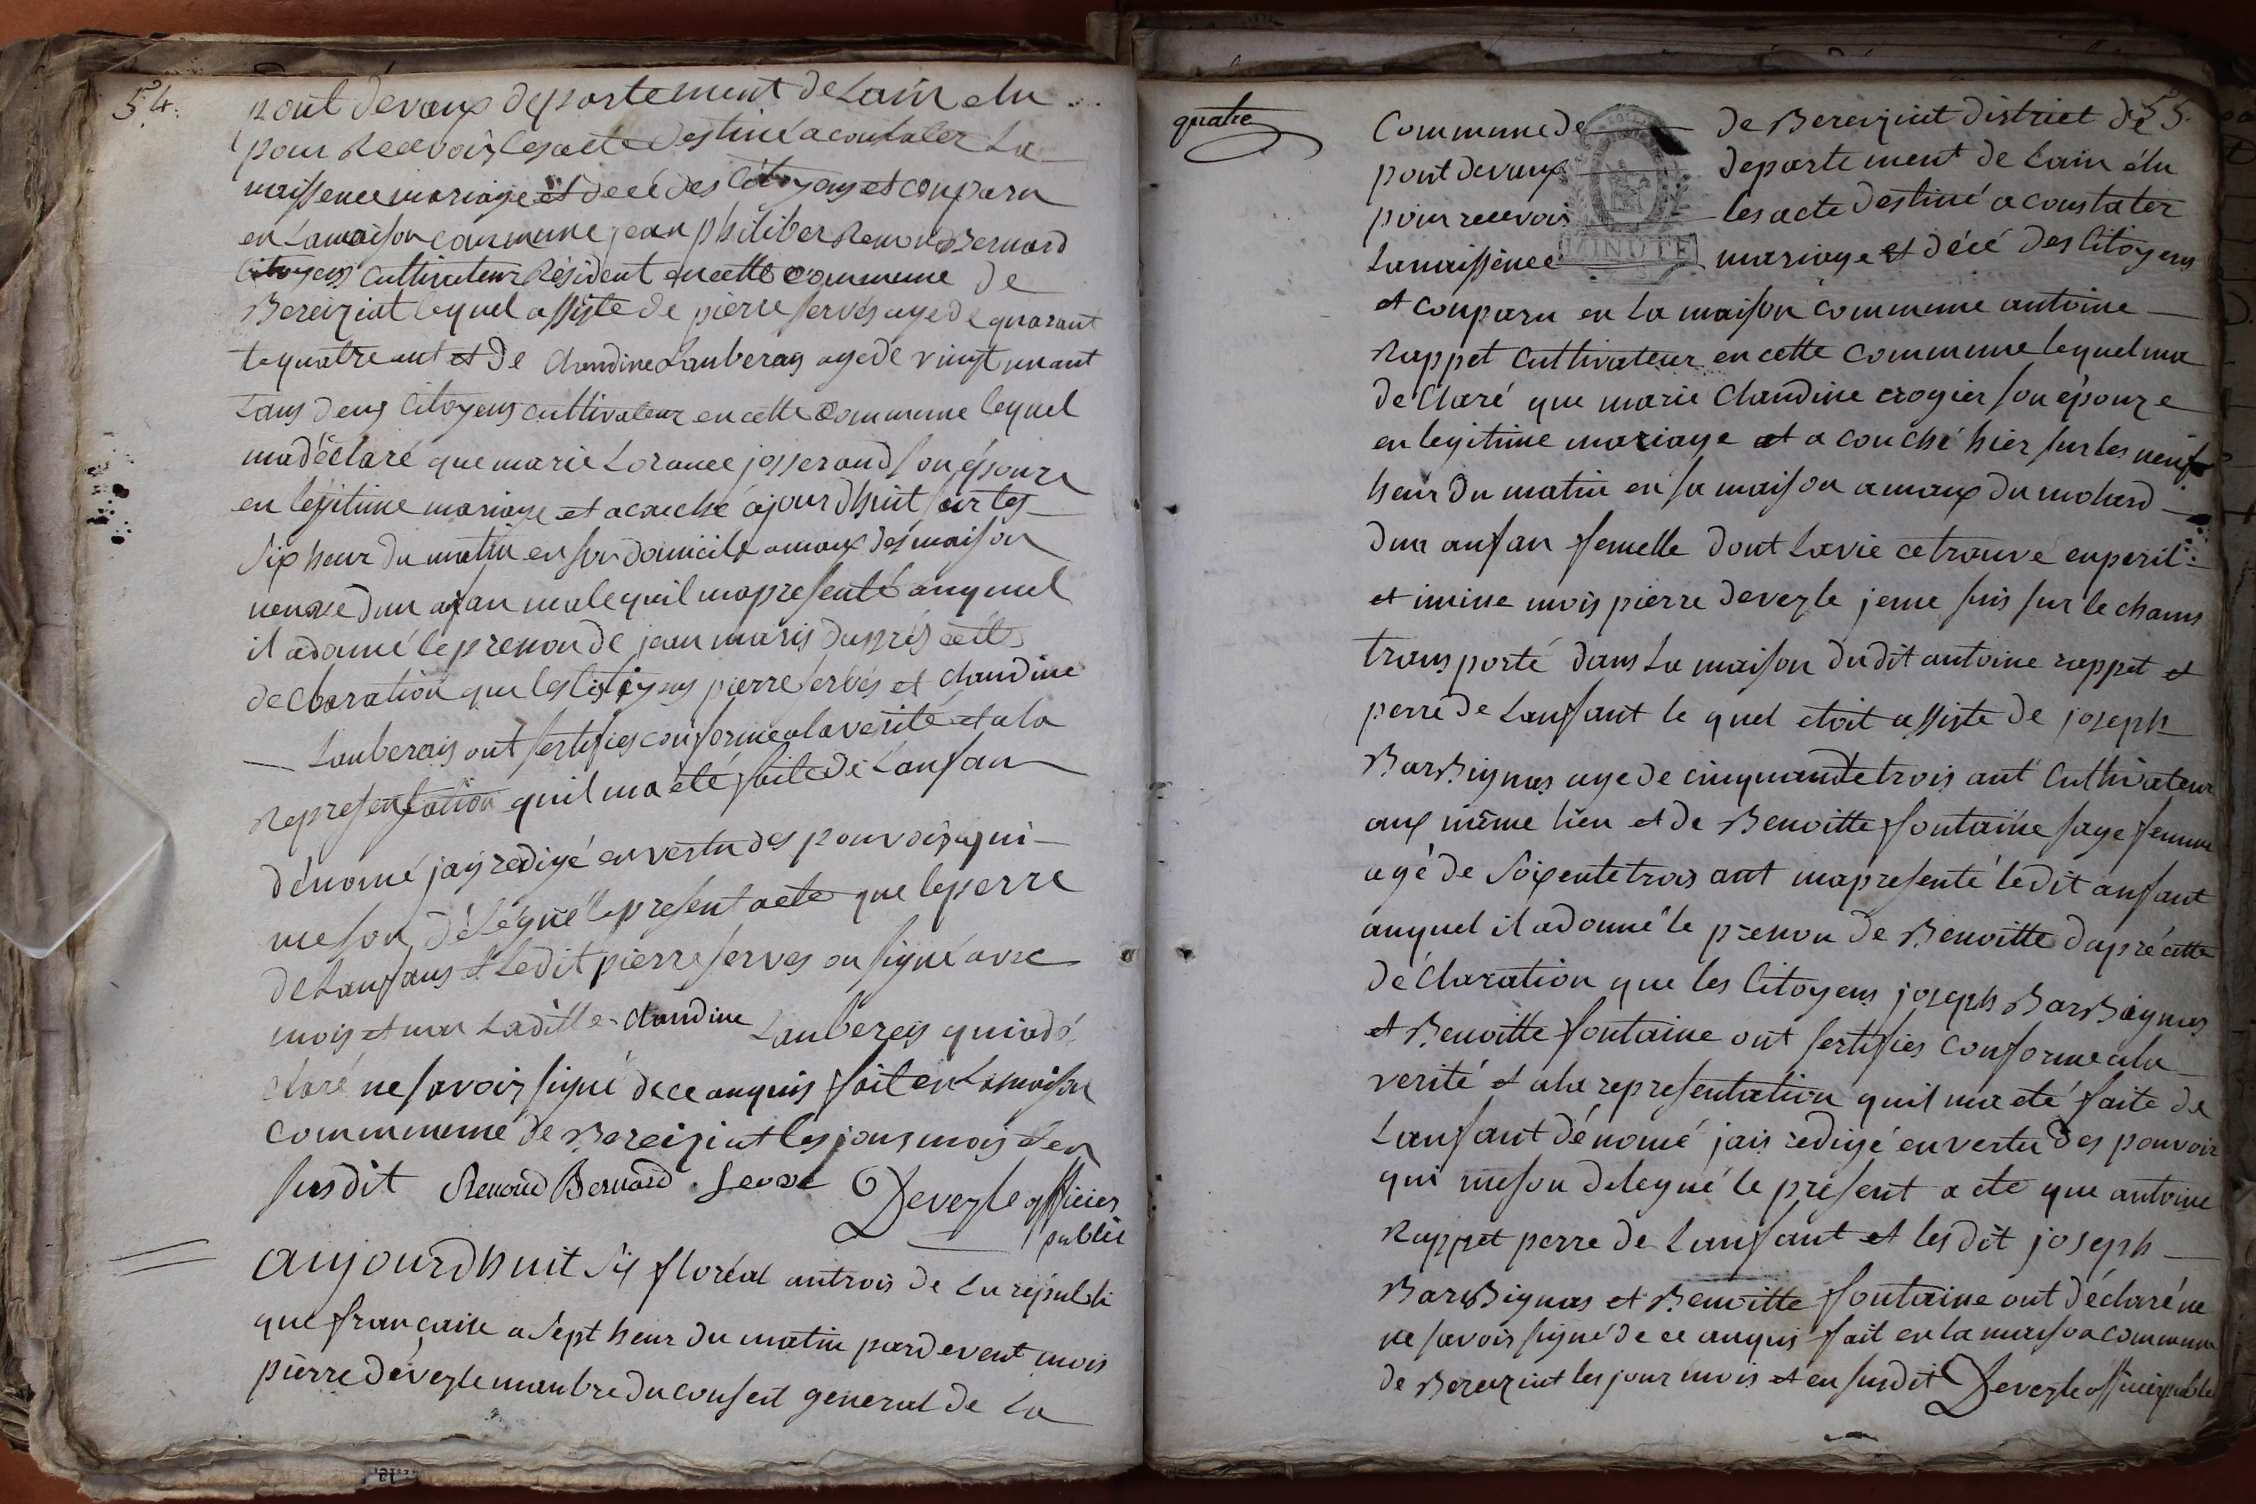 54.
pont devaux departement de Lain elu
pour Recevoir les acte destiné a constater La
naissence mariage et decé des Citoyens et conparu
en Lamaison commune jean philiber Remond Bernard
Citoyens Cultivateur Résident en cette commune de
Bereiziat lequel assiste de pierre serves age de quarant
te quatre ant et de Claudine Lauberay age de vingt un ant
tous deux Citoyens cultivateur en cette Commune lequel
ma déclaré que marie Lorance josserand son épouze
en légitime mariage et acouché ajourdhuit sur les
six heur du matin en son domicile amaux des maison
neuve dun anfan male quil mapresenté auquel
il adonné le prenon de jean maris daprés cette
declaration que les Citoyens pierre serves et claudine
Lauberais ont sertifies conforme ala verité et ala
representation quil ma eté faite de Lanfan
dénomé jais redigé en vertu des pouvoir qui
me son délégué le present acte que le perre
de Lanfans et Ledit pierre serves on signé avec
mois et non Ladille claudine Lauberais qui a dé
claré ne savoir signé de ce anquis fait en Lamaison
commune de Bereiziat les jour mois et en
susdit Remond Bernard. Serve Deveyle officier
public
aujourdhuit six floréal an trois de La républi
que françaiye a sept heur du matin pardevent mois
pierre déveyle manbre du conseil general de La
quatre
55.
Commune de de Bereiziat district de
pont devaux departement de Lain élu
pour recevoir les acte destiné a constater
La naissence mariage et décé des Citoyens
MINUTE
et conparu en La maison commune antoine
Rappet cultivateur en cette commune lequel ma
de Claré que marie Claudine crogier son épouze
en legitime mariage et a couché hier sur les neuf
heur du matin en sa maison amaux du molard
dun anfan femelle dont La vie ce trouve en peril
et imine mois pierre deveyle jeme suis sur le chams
transporté dans La maison dudit antoine rappet et
perre de Lanfant le quel etoit assiste de joseph
BarBignas age de cinquante trois ant Cultivateur
aux même lieu et de Benoitte fontaine sage femme
agé de soixente trois ant mapresenté ledit anfant
auquel il adonné le prenon de Benoitte dapré cette
déclaration que les Citoyens joseph BarBignas
et Benoitte fontaine ont sertifies conforme ala
verité et ala representation quil ma eté faite de
Lanfant dénomé jais redigé en vertu des pouvoir
qui me son delegué le présent acte que antoine
Rappet perre de Lanfant et lesdit joseph
BarBignas et Benoitte fontaine ont déclaré ne
ne savoir signé de ce anquis fait en la maison commune
de Bereiziat les jour mois et en susdit Deveyle officier public